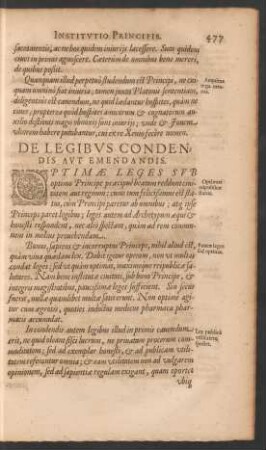 INSTITVTIO PRINCIPIS. 477
sacramentis, ac ne hos quidem iniurijs lacessere. Suos quidem
omnes in primis agnoscere. Caeterùm de omnibus bene mereri,
de quibus possit.
Quanquam illud perpetuò studendum est Principi, ne cui
quam omnino fiat iniuria, tamen juxta Platonis sententiam,
diligentiùs est cauendum, ne quid laedantur hospites, quàm ne
ciues, propterea quòd hospites amicorum & cognatorum
auxilijs destituti
DE LEGIBVS CONDEN
DIS AVT EMENDANDIS.
OPTIMAE LEGES SVB
optimo Principe praecipuè beatam reddunt ciui-
tatem aut regnum: cuius tum felicissimus est sta-
tus, cùm Principi paretur ab omnibus, atq; ipse
Princeps paret legibus; leges autem ad Archetypum aequi &
honesti respondent, nec aliò spectant, quàm ad rem commu-
nem in melius prouehendam.
Bonus, sapiens & incorruptus Princeps, nihil aliud est,
quàm viua quaedam lex. Dabit igitur operam, non vt multas
condat leges; sed vt quàm optimas, maximeque reipublicae sa-
lutares. Nam bene instituta ciuitati, sub bono Principe, &
integris magistratibus, paucissimae leges sufficient. Sin secus
fuerit, nulla quamlibet multae satis erunt. Non optimè agi-
tur cum aegrotis, quoties indoctus medicus pharmaca phar-
macis accumulat.
In condendis autem legibus illud in primis cauendum
erit, ne quid oleant fisci lucrum, ne priuatam procerum com-
moditatem; sed ad exemplar honesti, & ad publicam vtili-
tatem referantur omnia; & eam vtilitatem non ad vulgarem
opinionem, sed ad sapientiae regulam exigant, quam oportet
vbiq